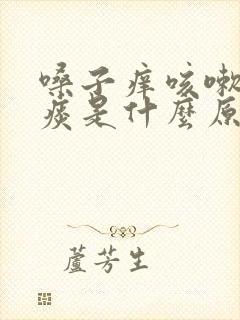 嗓子痒咳嗽
痰是什麼原
蘆芳生